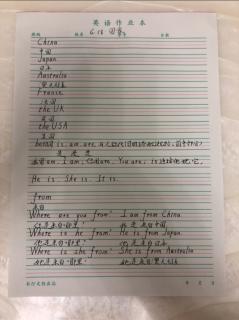 英语作业本
班级 姓名 6.18 日期
China
中国
Japan
日本
Australia
澳大利亚
France
法国
the UK
英国
the USA
美国
be动词 is, am, are,
是 是 是
I am, are, You are, is
He is. She is. It is.
from
来自
Where are you from? I am from China
你是来自哪里? 我是来自中国
Where is he from? He is from Japan.
他是来自哪里? 他是来自日本
Where is she from? She is from Australia
她是来自哪里? 她是来自澳大利亚
年 月 日